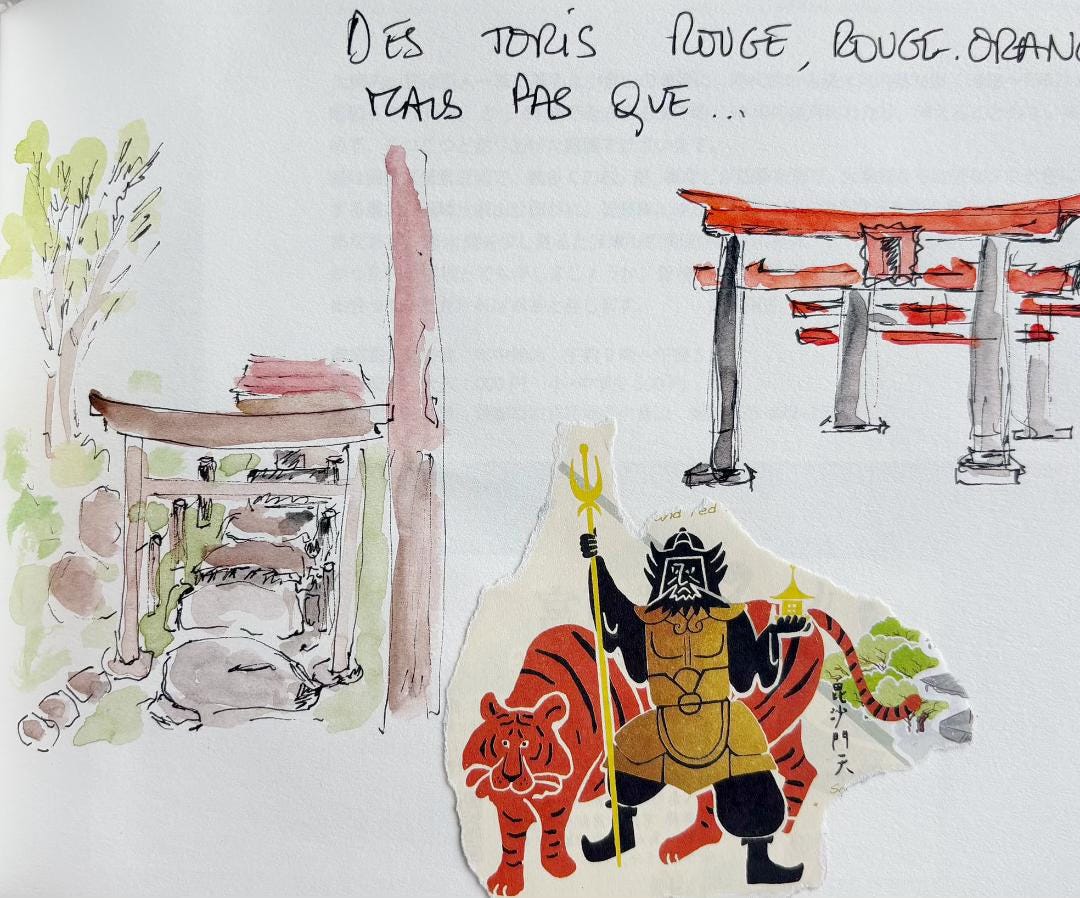 DES TORIS ROUGE, ROUGE-ORANG
MAIS PAS QUE...
und red
毘沙門天